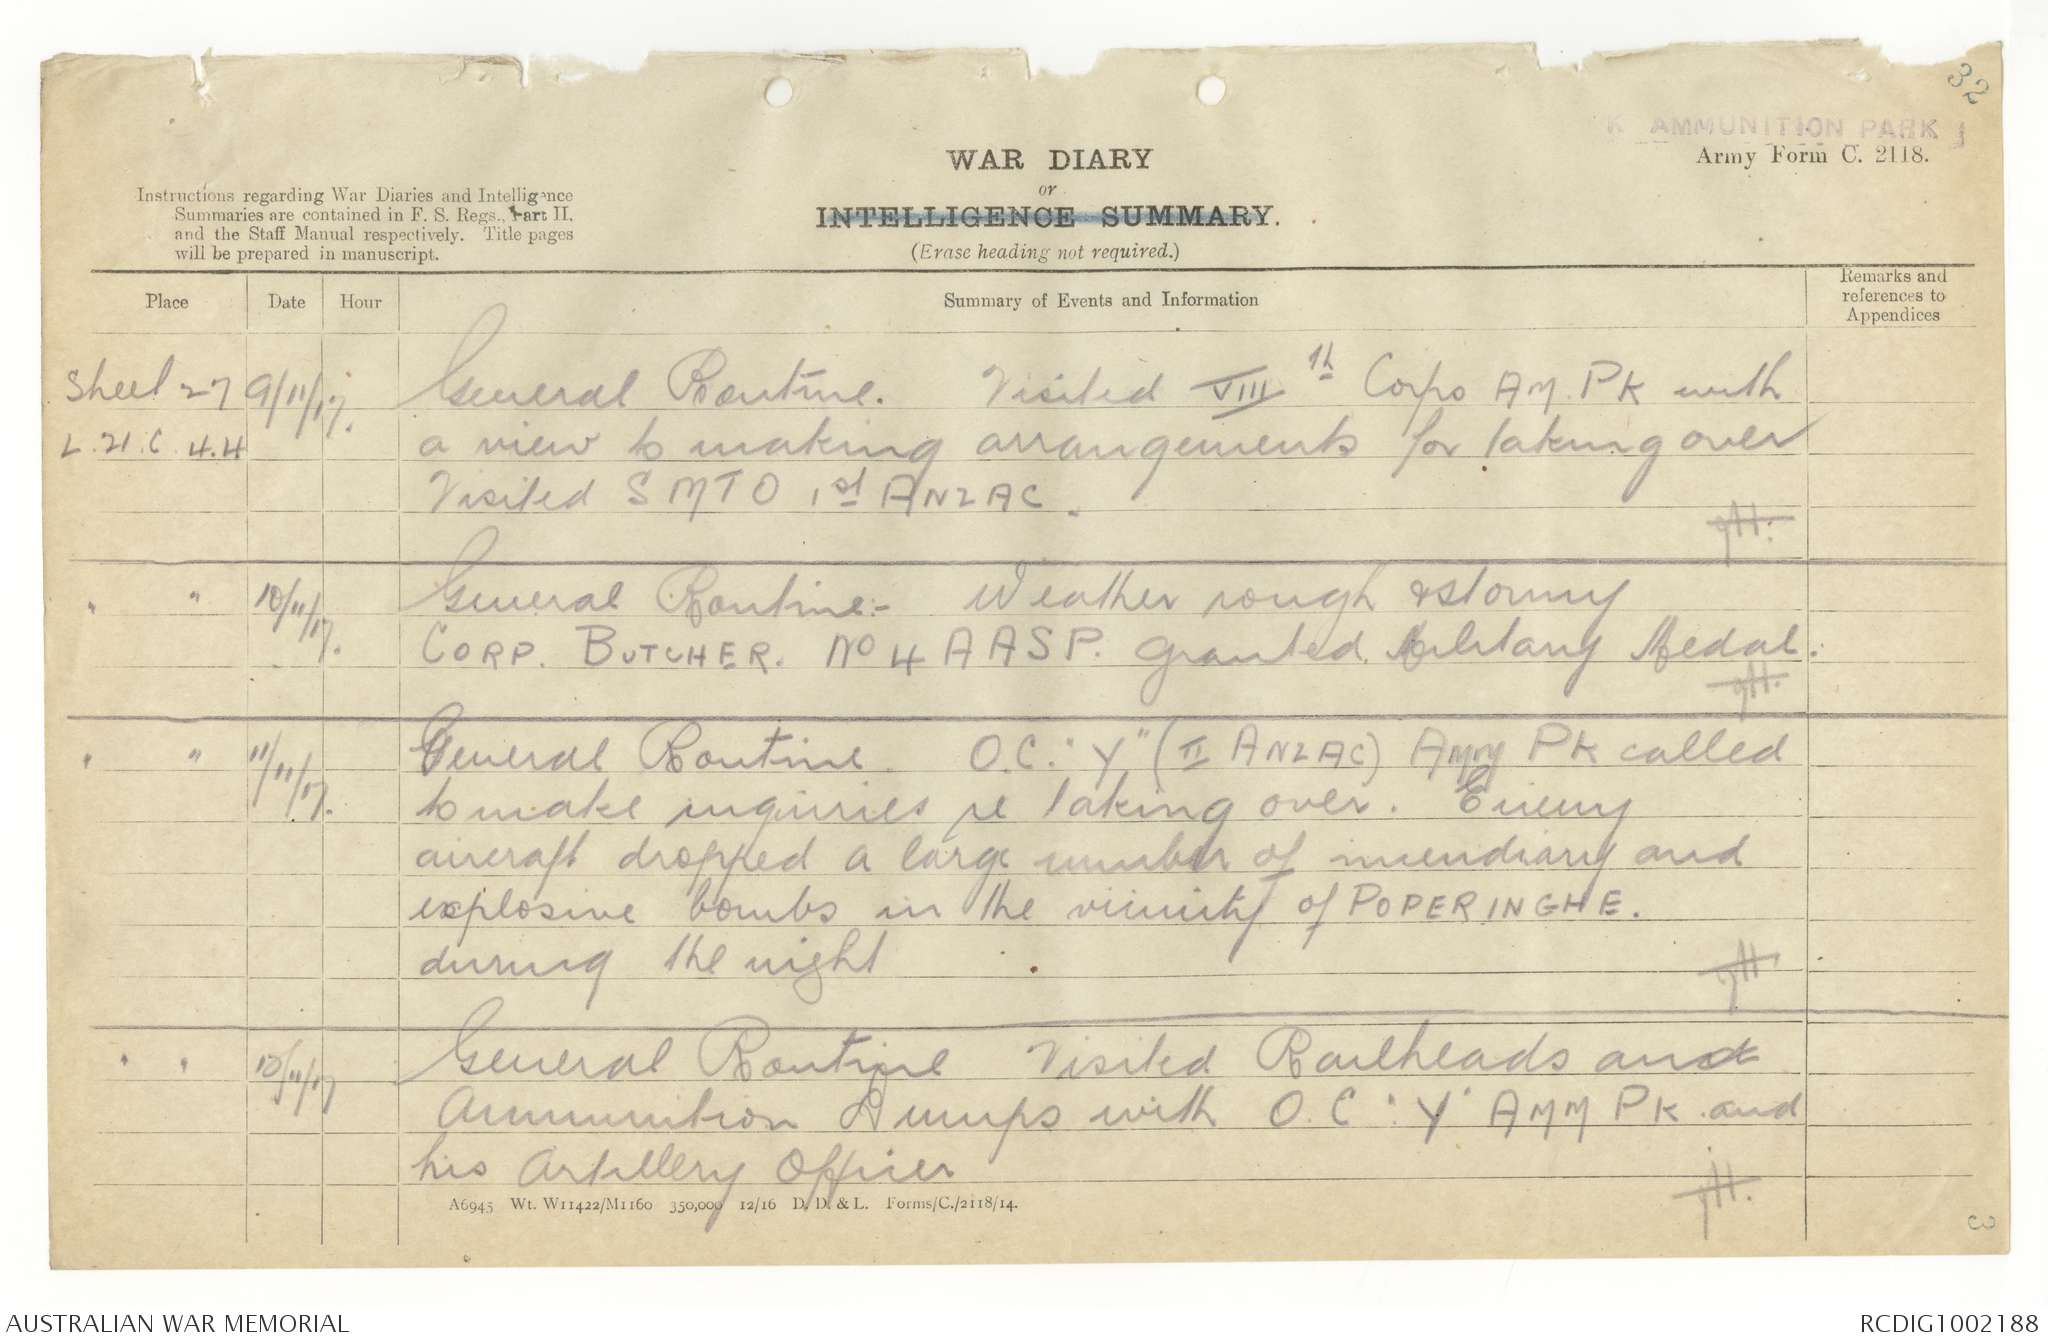 32
K AMMUNITION PARK
Army Form C. 2118.
WAR DIARY
or
INTELLIGENCE SUMMARY.
(Erase heading not required.)
Instructions regarding War Diaries and Intelligence
Summaries are contained in F. S. Regs., Part II.
and the Staff Manual respectively. Title pages
will be prepared in manuscript.
Place Date Hour Summary of Events and Information Remarks and references to Appendices
Sheet 27 9/11/17. General Routine. Visited VIII th Corps AM. PK with
L.21.C.4.4 a view to making arrangements for taking over
Visited SMTO 1st ANZAC.
" " 10/11/17. General Routine:- Weather rough & stormy
CORP. BUTCHER. No 4 AASP. granted Military Medal.
" " 11/11/17. General Routine. O.C. "Y" (II ANZAC) AMM PK called
to make inquiries re taking over. Enemy
aircraft dropped a large number of incendiary and
explosive bombs in the vicinity of POPERINGHE.
during the night
" " 12/11/17 General Routine Visited Railheads and
Ammunition Dumps with O.C "Y" AMM PK. and
his Artillery Officer
A6945 Wt. W11422/M1160 350,000 12/16 D. D. & L. Forms/C./2118/14.
3
AUSTRALIAN WAR MEMORIAL
RCDIG1002188